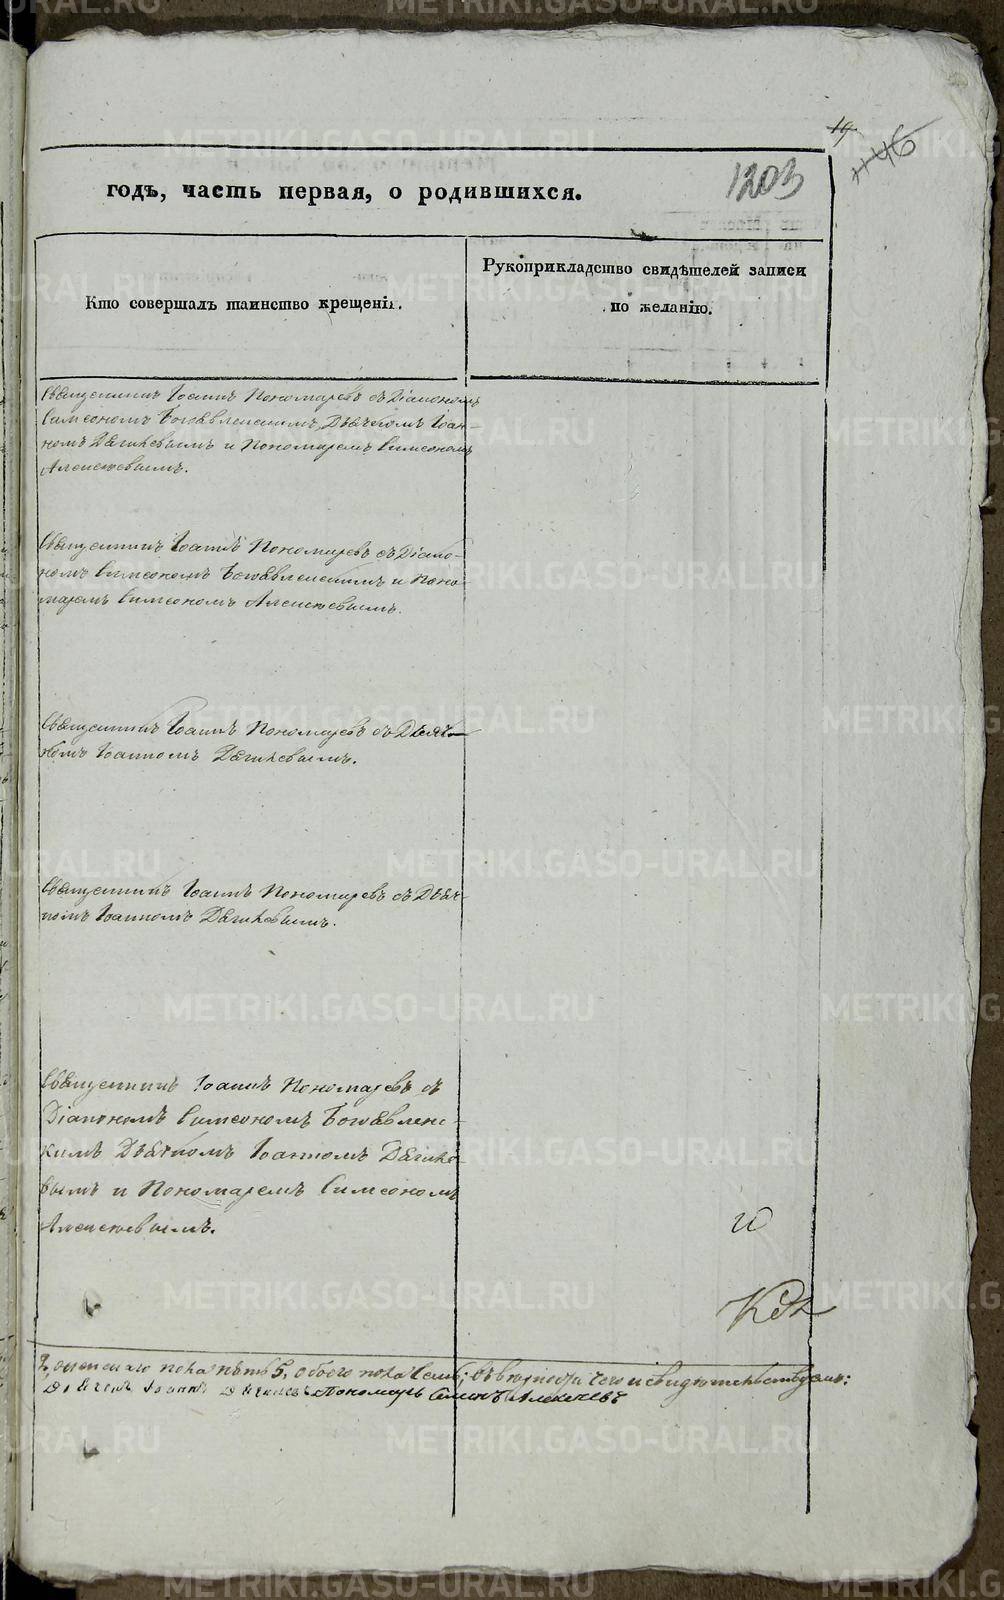 19
46
1203
годъ, часть первая, о родившихся.
Кто совершалъ таинство крещенія.
Рукоприкладство свидѣтелей записи
по желанію.
Священникъ Іоаннъ Пономаревъ съ Діакономъ
Симеономъ Богоявленскимъ, Дьячкомъ Іоан-
номъ Дягилевымъ и Пономаремъ Симеономъ
Алексѣевымъ.
Священникъ Іоаннъ Пономаревъ съ Діако-
номъ Симеономъ Богоявленскимъ и Поно-
маремъ Симеономъ Алексѣевымъ.
Священникъ Іоаннъ Пономаревъ съ Дьяч-
комъ Іоанномъ Дягилевымъ.
Священникъ Іоаннъ Пономаревъ съ Дьяч-
комъ Іоанномъ Дягилевымъ.
Священникъ Іоаннъ Пономаревъ съ
Діакономъ Симеономъ Богоявленс-
кимъ Дьячкомъ Іоанномъ Дягиле-
вымъ и Пономаремъ Симеономъ
Алексѣевымъ.
женскаго пола пять 5, обоего пола семь; въ чего и свидѣтельствуемъ:
Дьячекъ Іоаннъ Дягилевъ Пономарь Семенъ Алексѣевъ
METRIKI.GASO-URAL.RU